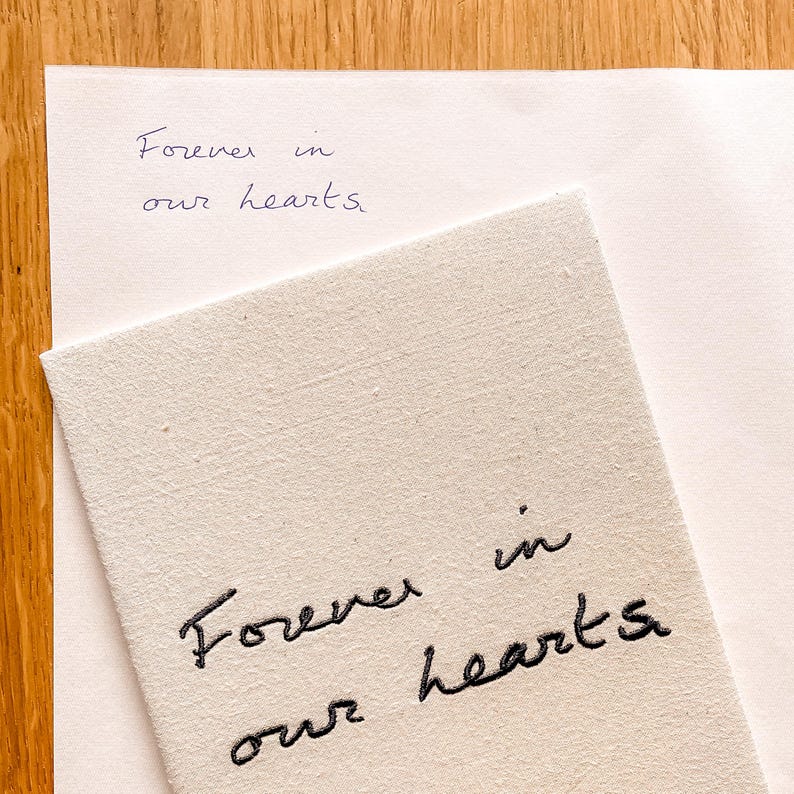 Forever in
our hearts
Forever in
our hearts